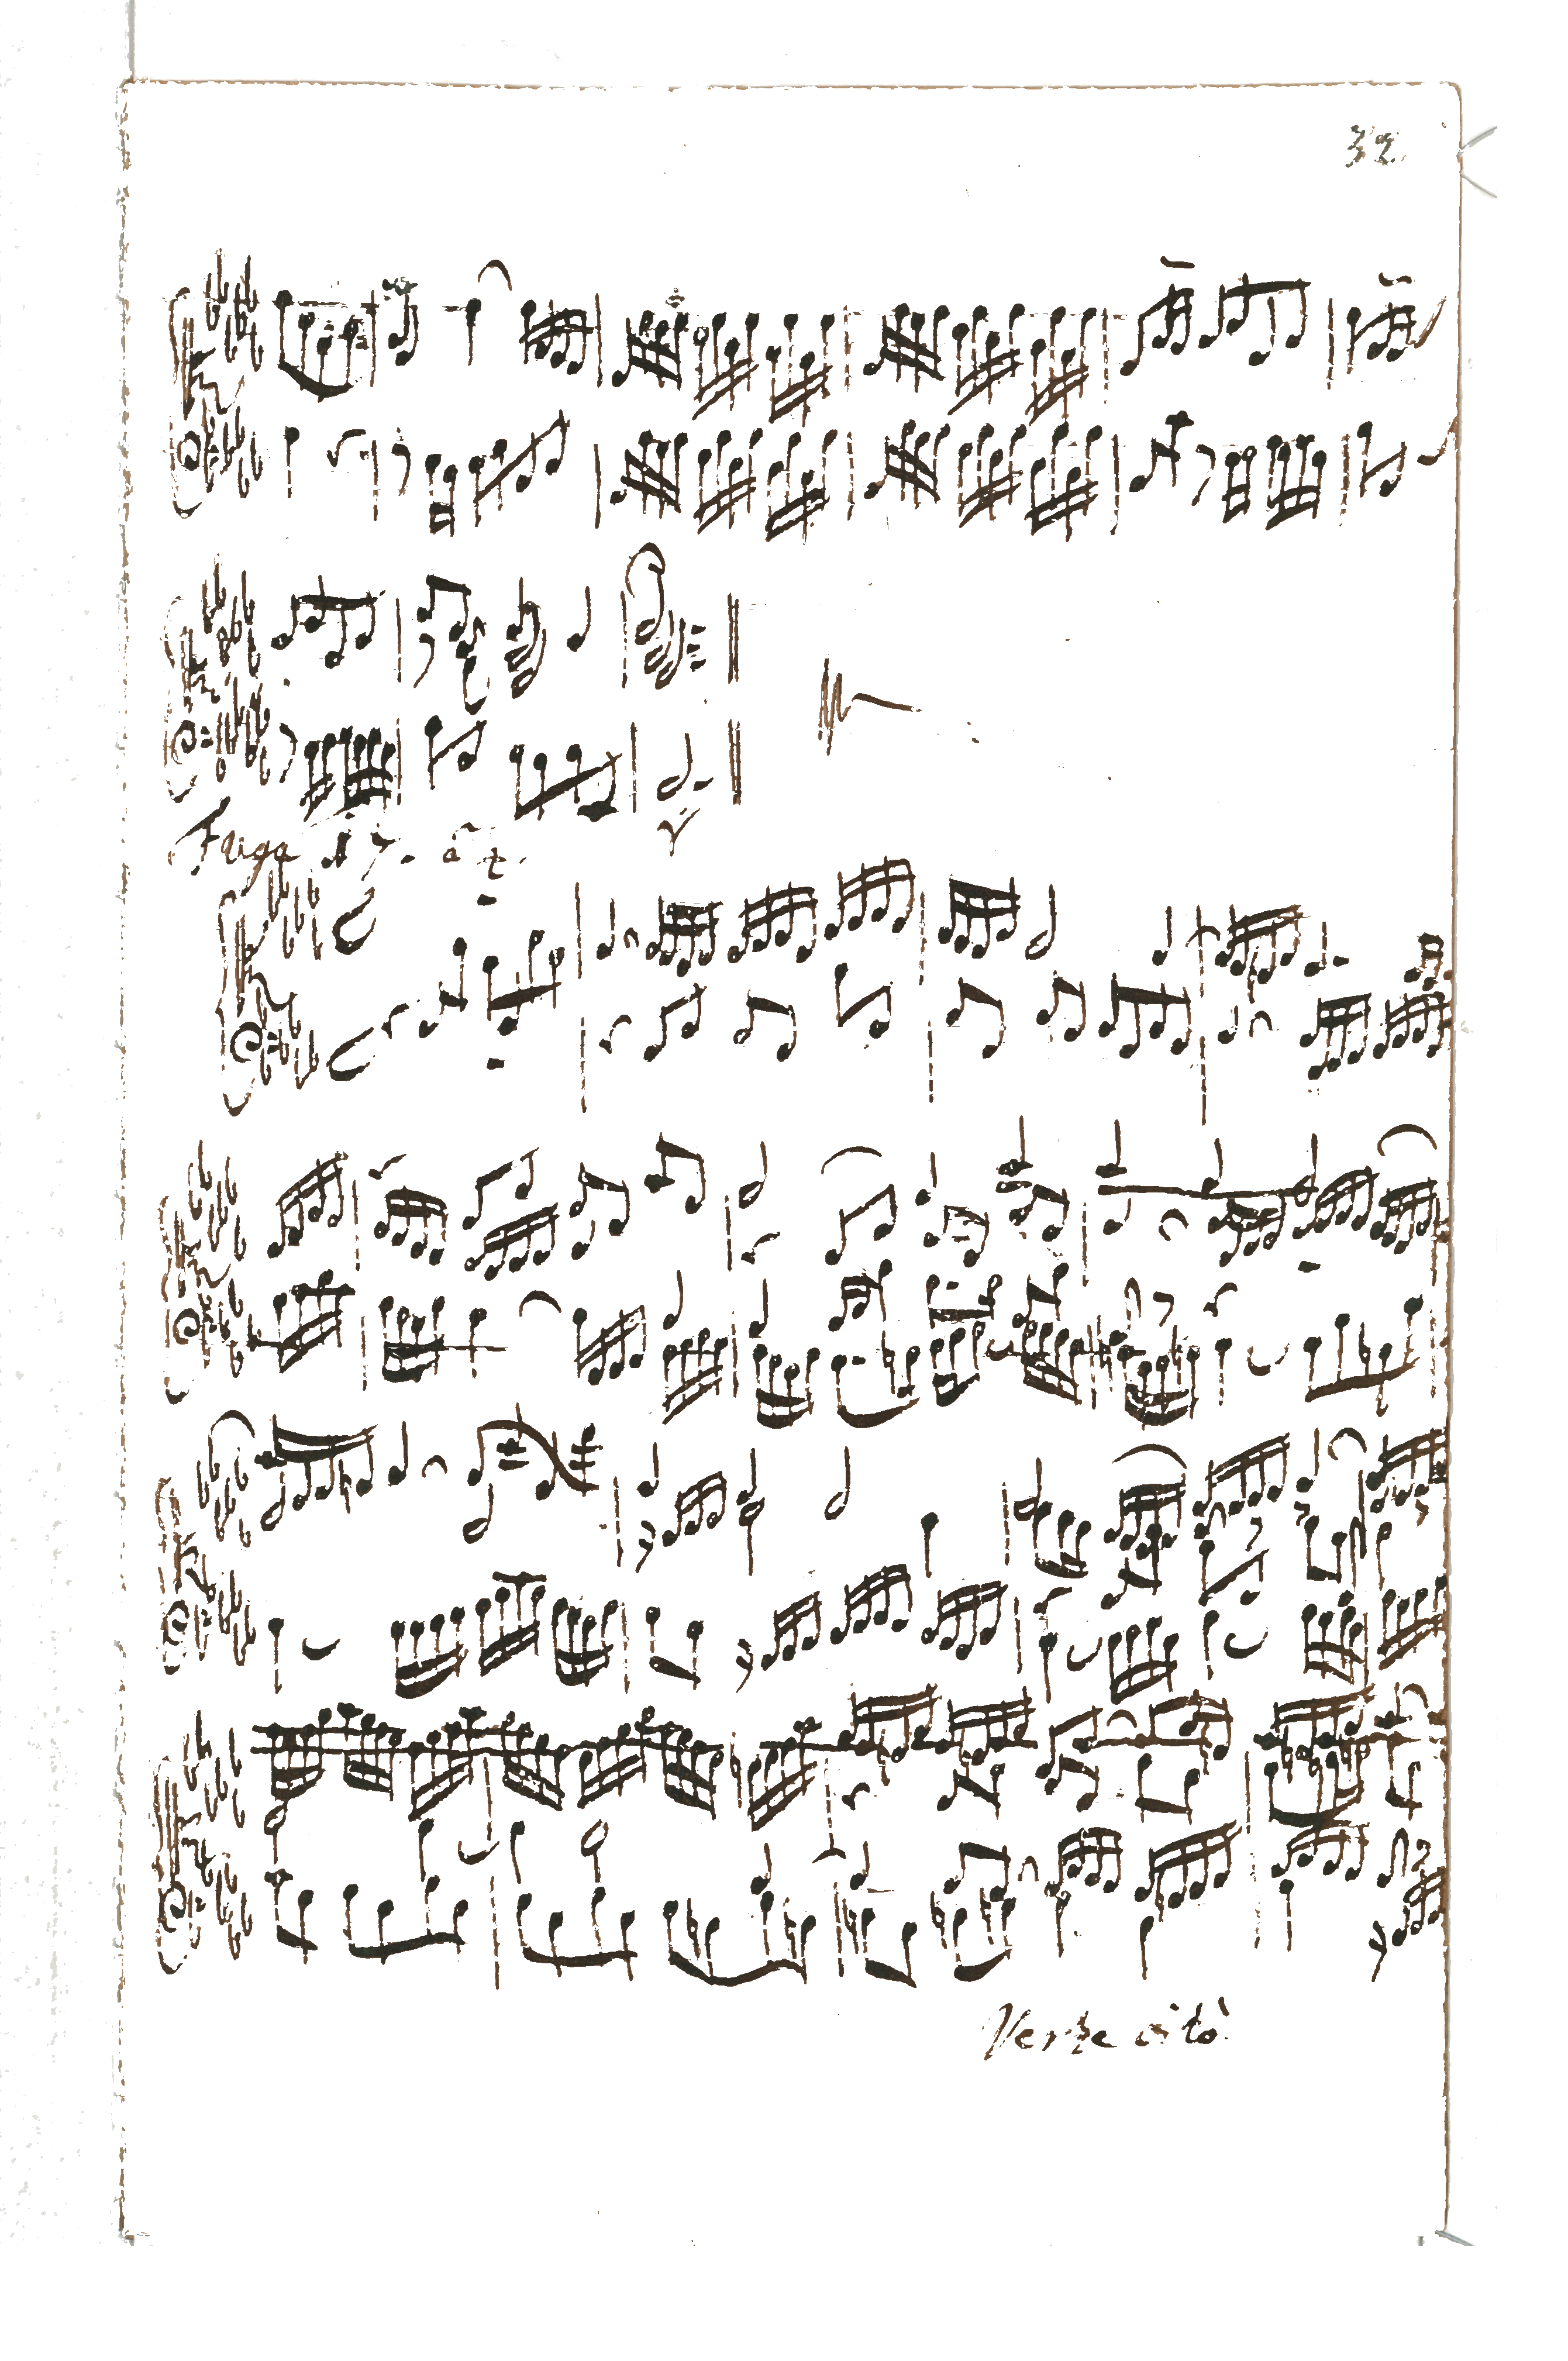 32
Fuga 17. à 4.
Verte citò